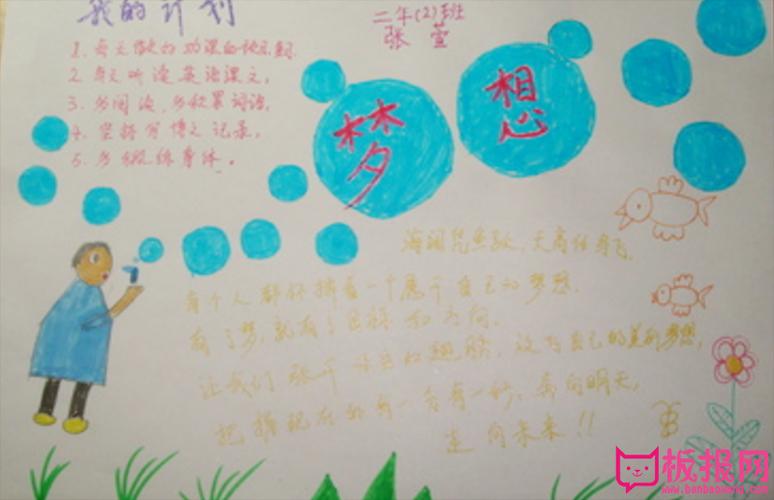 我的计划
二年(2)班
张萱
1. 每天做好功课的预习
2. 每天听读英语课文,
3. 多阅读、多积累词语,
4. 坚持写博文记录,
5. 多锻练身体。
梦想
海阔凭鱼跃,天高任鸟飞,
每个人都怀揣着一个属于自己的梦想.
有了梦,就有了目标和方向.
让我们张开 的翅膀, 自己的美好梦想,
把握现在的每一分每一秒,奔向明天,
走向未来!!
板报网
www.banbaowang.com